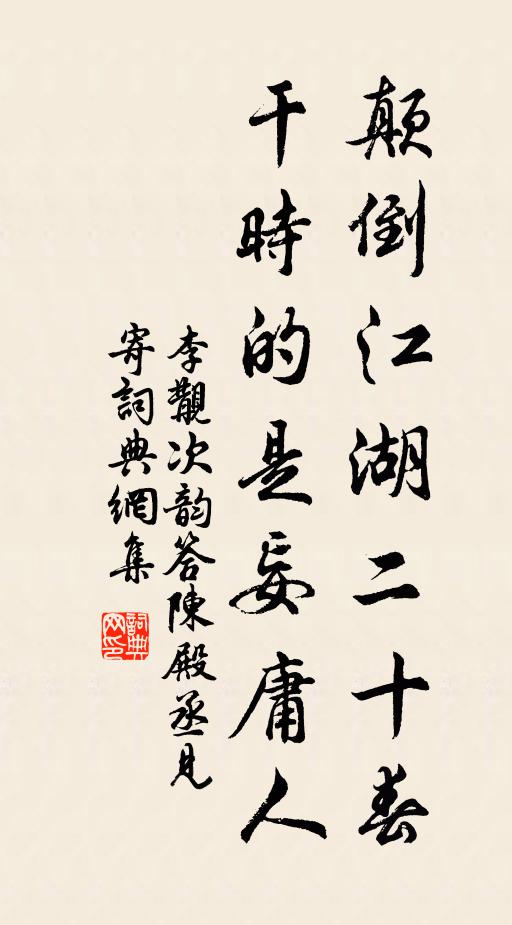 顛倒江湖二十春
干時的是妄庸人
李覯次韵答陳殿丞見
寄詞典網集
詞典
网印